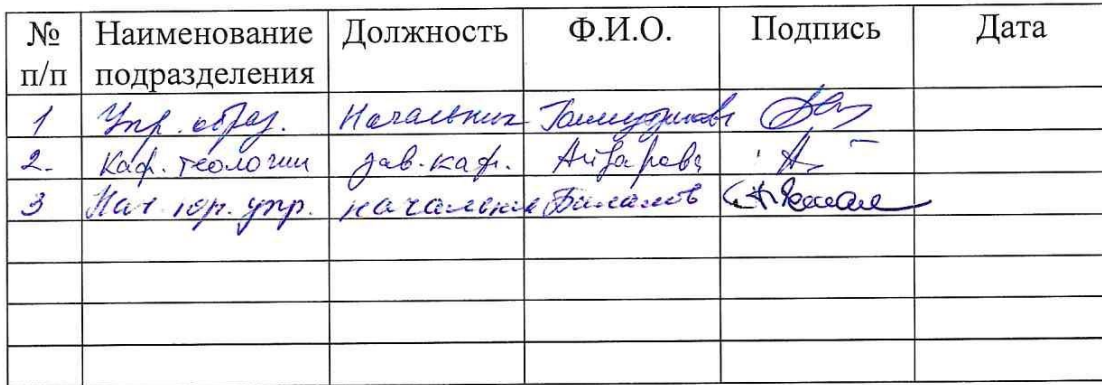 № п/п Наименование подразделения Должность Ф.И.О. Подпись Дата
1 Упр. образ. Начальник
2. Каф. теологии зав. каф. Айдарова
3 Нач. юр. упр. начальник Билалов